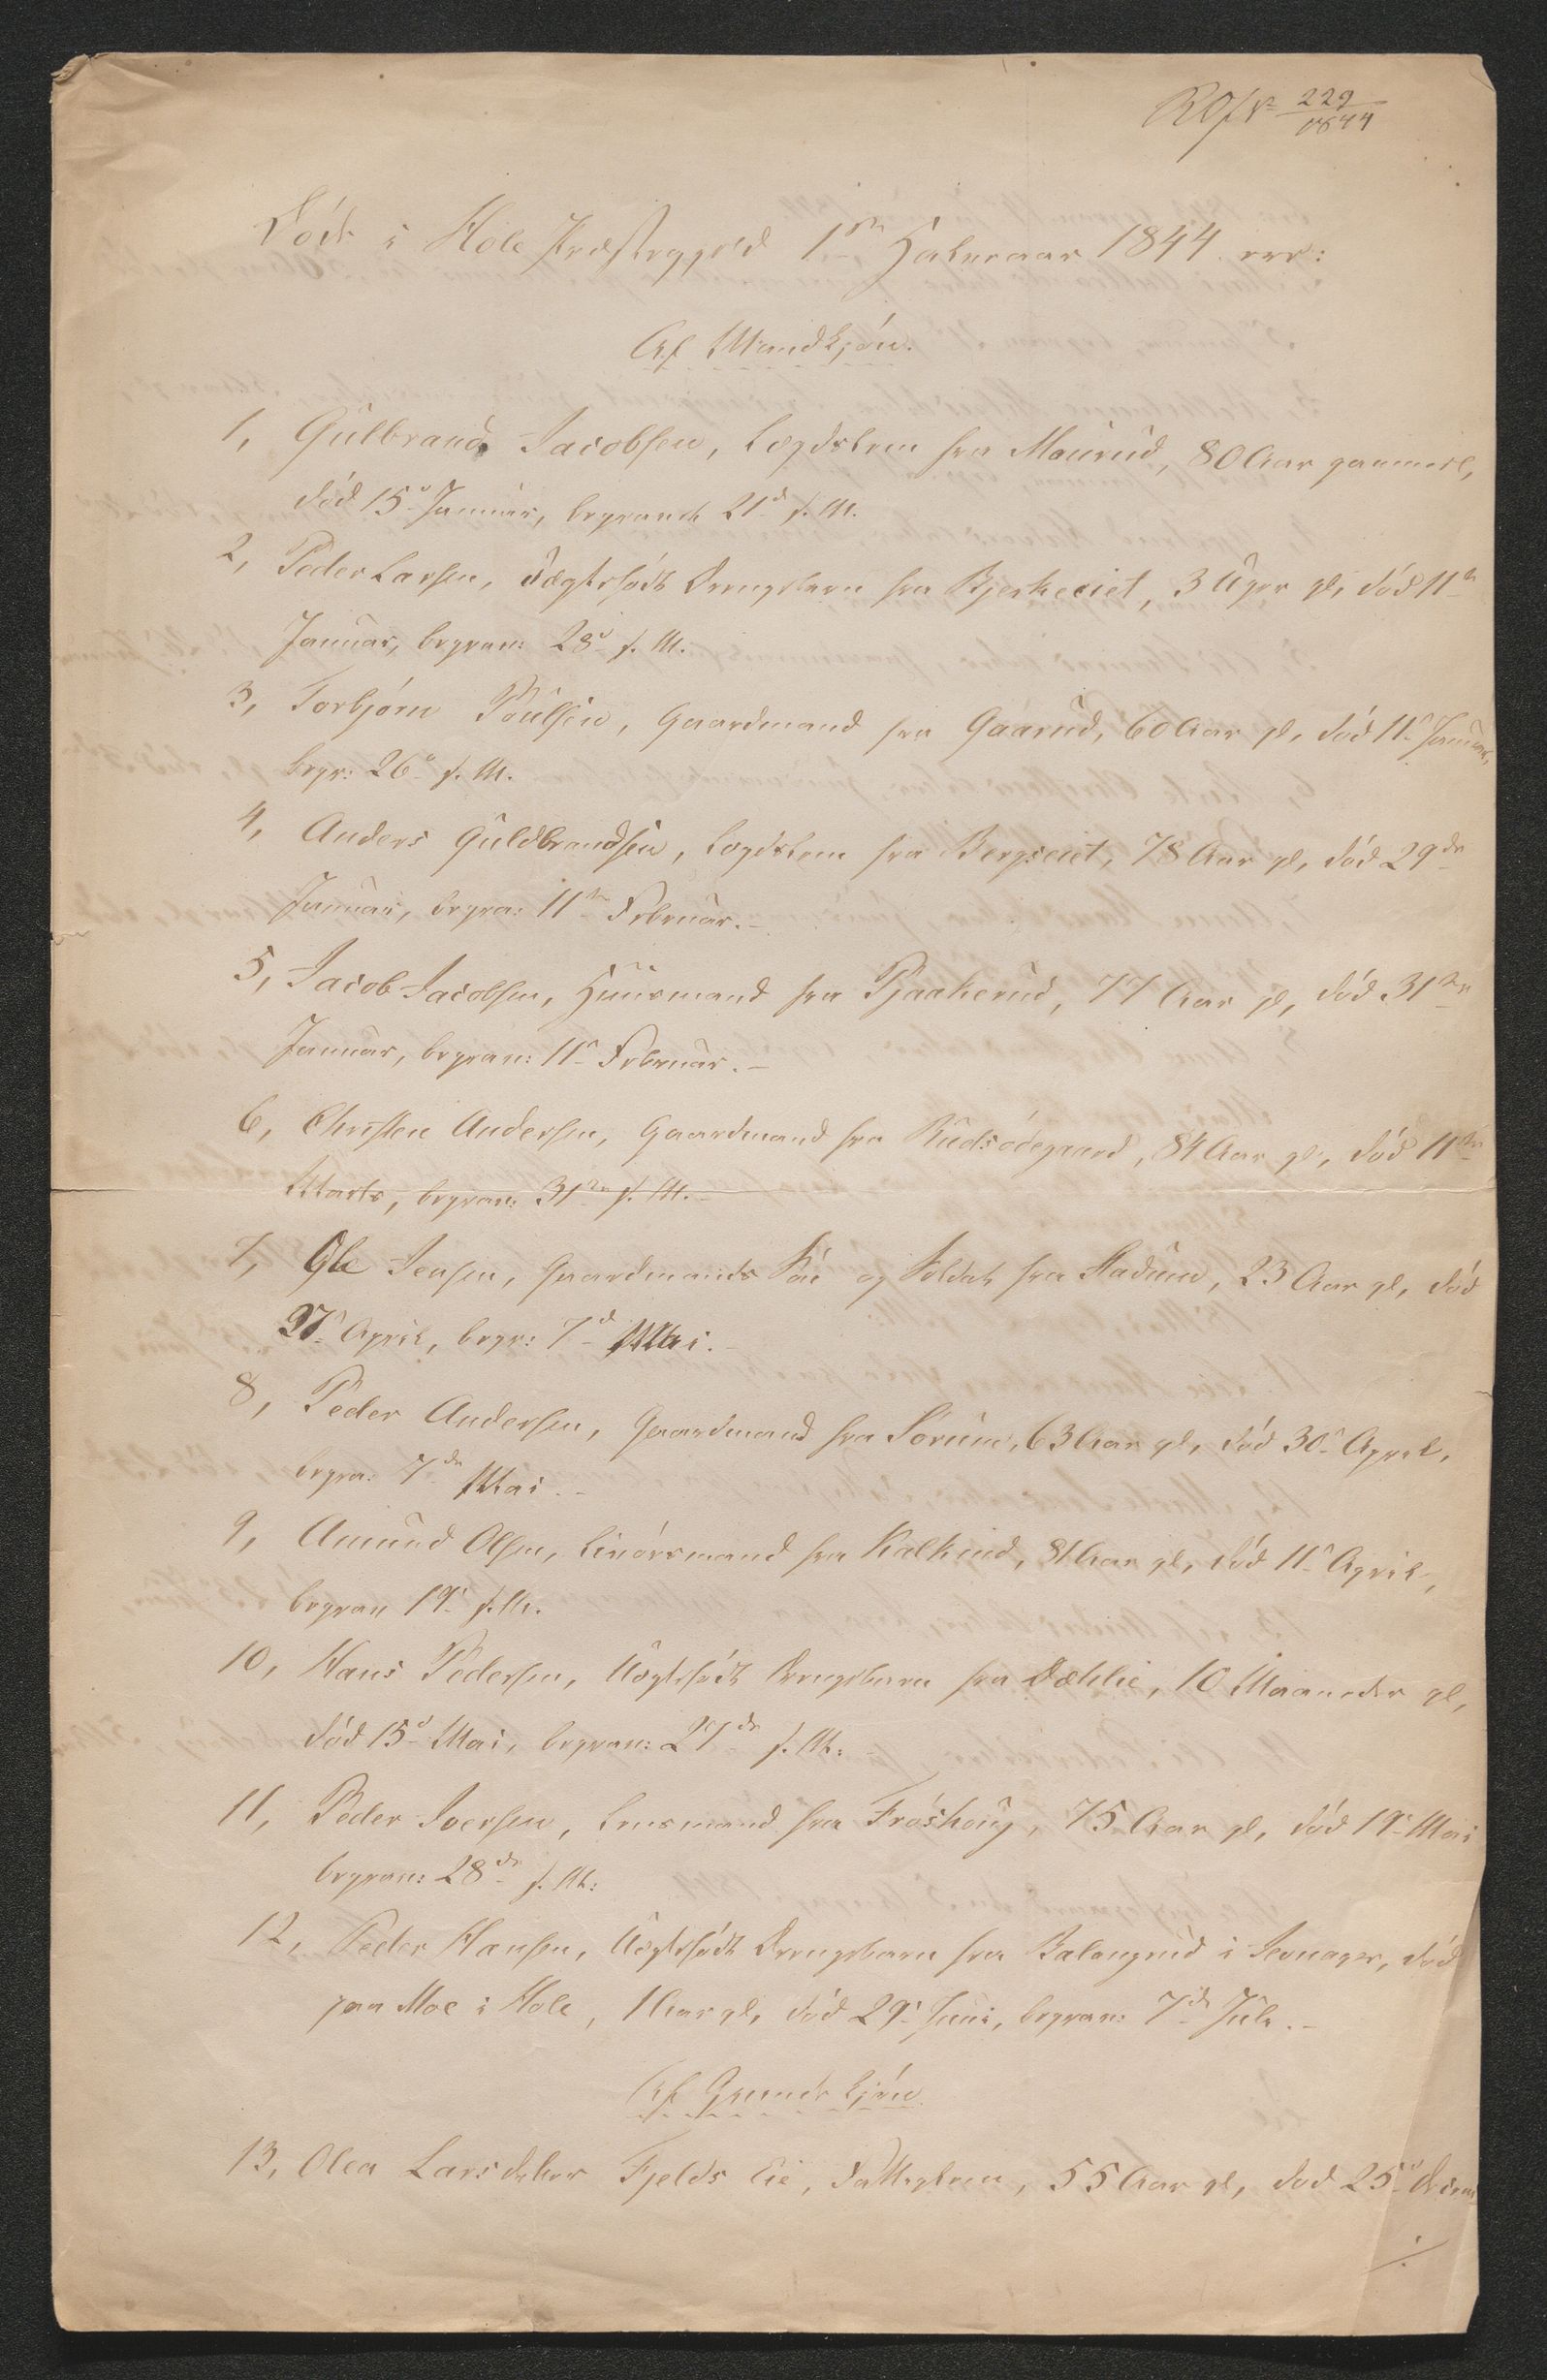 229
1844
Døde i Hole Præstegjeld 1ste Halvaar 1844 ere:
Af Mandkjøn.
1, Gulbrand Jacobsen, Lægdslem fra Maurud, 80 Aar gammel,
død 15d Januar, begravet 21d s. M.
2, Peder Larsen, uægtefødt Drengebarn fra Bjerkeeiet, 3 Uger gl, død 11te
Januar, begravn: 28d s. M.
3, Torbjørn Poulsen, Gaardmand fra Gaarud, 60 Aar gl, død 11t Januar,
begr: 26d s. M.
4, Anders Guldbrandsen, Lægdslem fra Bergseiet, 78 Aar gl, død 29de
Januar, begra: 11te Februar.-
5, Jacob Jacobsen, Huusmand fra Pjaakerud, 77 Aar gl, død 31te
Januar, begrav: 11t Februar.-
6, Christen Andersen, Gaardmand fra Rudsødegaard, 84 Aar gl, død 11te
Marts, begrav: 31te s. M.-
7, Ole Jensen, Gaardmands Søn og Soldat fra Stadum, 23 Aar gl, død
27t April, begr: 7d Mai.-
8, Peder Andersen, Gaardmand fra Sørum, 63 Aar gl, død 30t April,
begra: 7de Mai.-
9, Amund Olsen, fra Kalkind, 81 Aar gl, død 11t April,
begrav 19t s. M.
10, Hans Pedersen, Uægtefødt Drengebarn fra Dæhlie, 10 Maaneder gl,
død 15d Mai, begrav: 27de s. M:
11, Peder Iversen, Lensmand fra Frøshoug, 75 Aar gl, død 19t Mai
begrav: 28de s. M:
12, Peder Hansen, Uægtefødt Drengebarn fra Balangrud i Jevnager, død
paa Moe i Hole, 1 Aar gl, død 29t Juni, begrav: 7de Juli.-
Af Qvindekjøn
13, Olea Larsdatter Fjelds Eie, Fattiglem, 55 Aar gl, død 25d Decem
./.